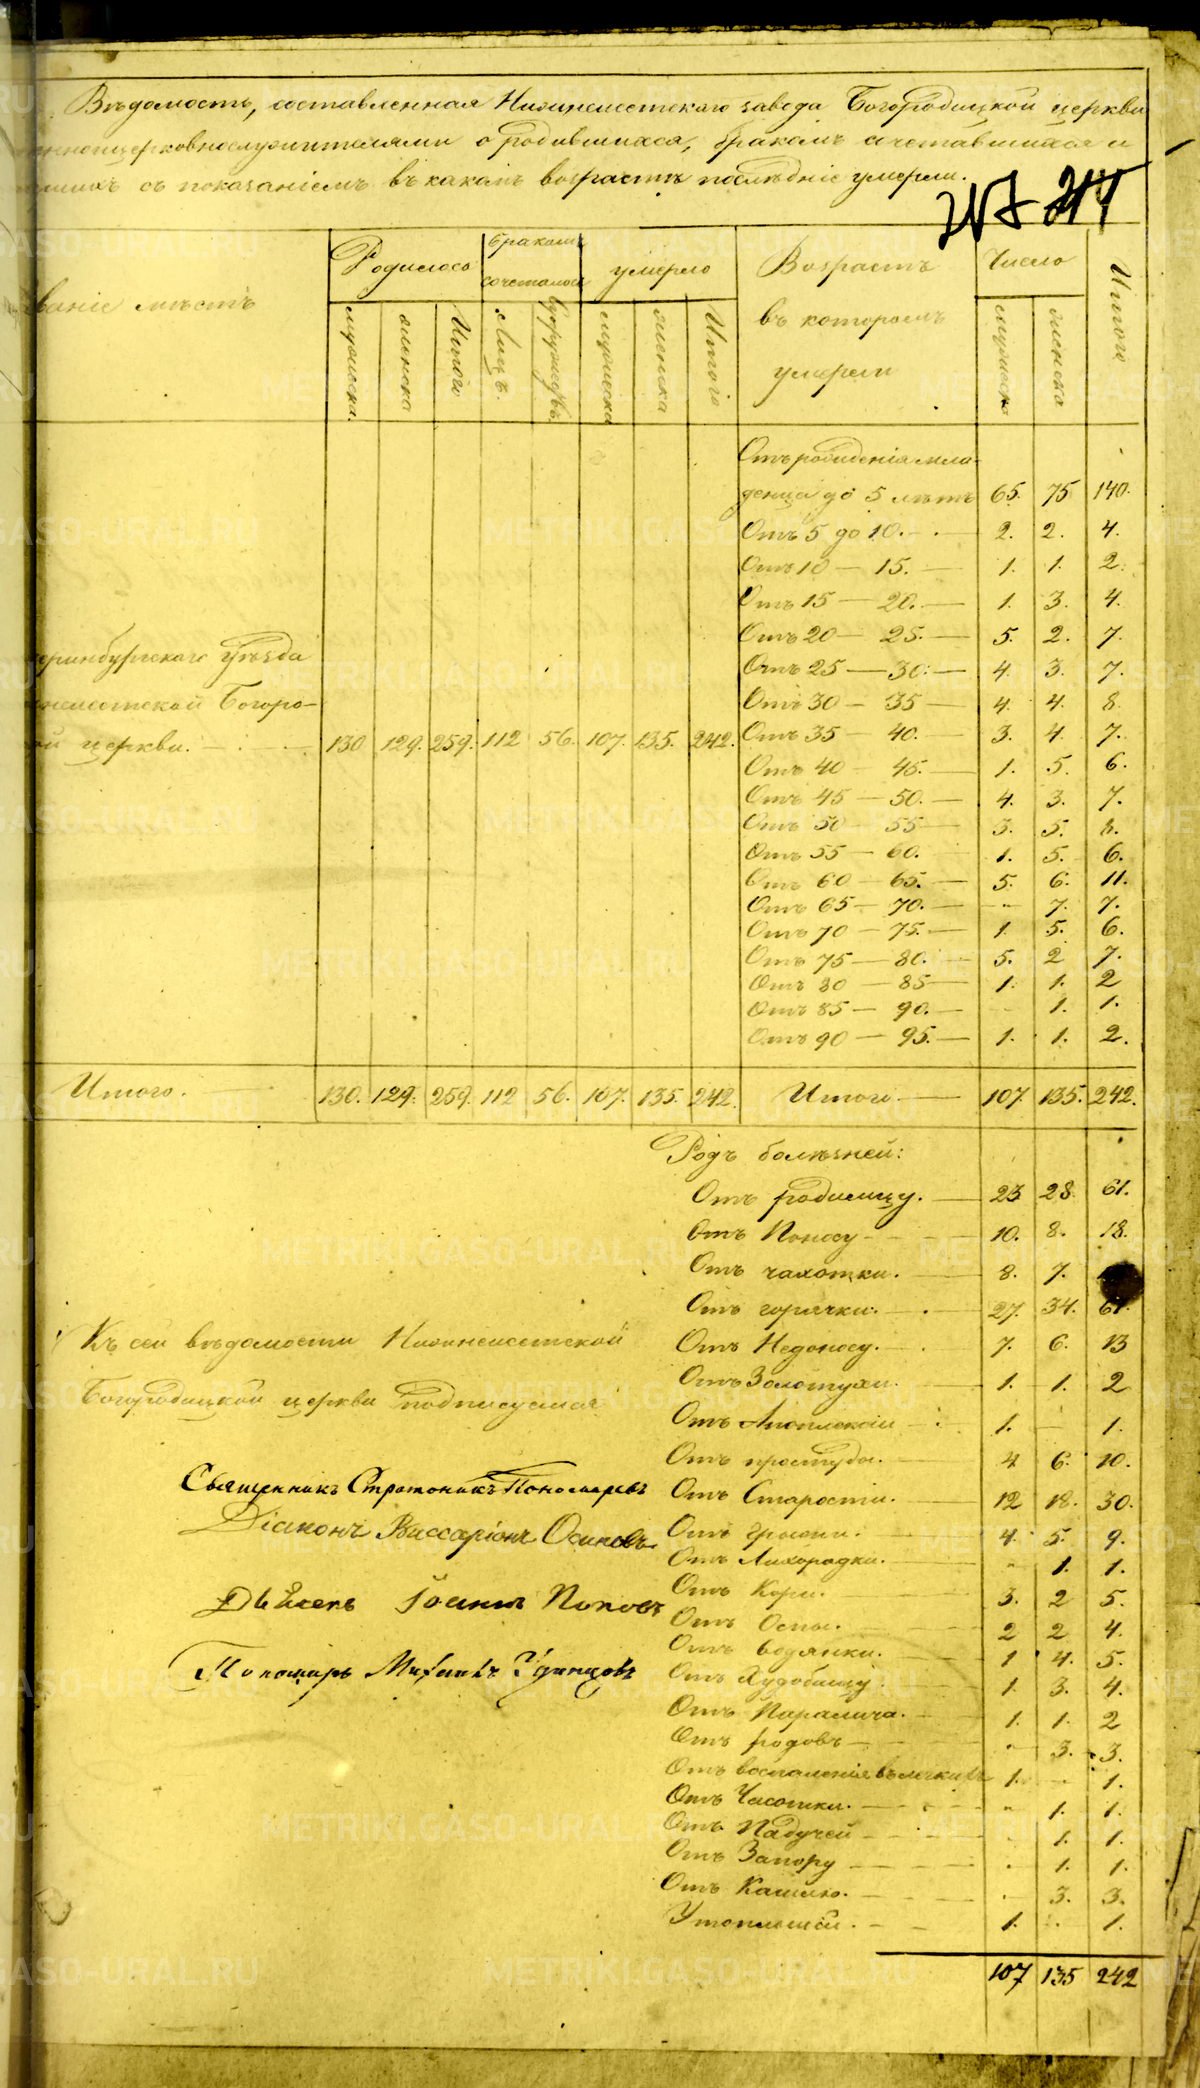 Вѣдомость, составленная Нижнеисетскаго завода Богородицкой церкви
священноцерковнослужителями о родившихся, бракомъ сочетавшихся и
съ показаніемъ въ какомъ возрастѣ послѣдніе умерли.
мѣстъ Родилось Бракомъ сочеталось умерло Возрастъ въ которомъ умерли Число Итого
мужеска женска Итого Лицъ. Супружествъ. мужеска женска Итого мужеска женска
Отъ рожденія мла-
денца до 5 лѣтъ 65. 75 140.
Отъ 5 до 10. 2. 2. 4.
Отъ 10 — 15. — 1. 1. 2.
Отъ 15 — 20. — 1. 3. 4.
Отъ 20 — 25. — 5. 2. 7.
уѣзда
Отъ 25 — 30. — 4. 3. 7.
Богоро-
Отъ 30 — 35 — 4. 4. 8.
церкви. 130 129. 259. 112 56. 107. 135. 242. Отъ 35 — 40. — 3. 4. 7.
Отъ 40 — 45. — 1. 5. 6.
Отъ 45 — 50. — 4. 3. 7.
Отъ 50 — 55 — 3. 5. 8.
Отъ 55 — 60. — 1. 5. 6.
Отъ 60 — 65. — 5. 6. 11.
Отъ 65 — 70. — - 7. 7.
Отъ 70 — 75. — 1. 5. 6.
Отъ 75 — 80. — 5. 2 7.
Отъ 80 — 85 — 1. 1. 2
Отъ 85 — 90. — - 1. 1.
Отъ 90 — 95. — 1. 1. 2.
Итого. — 130. 129. 259. 112 56. 107. 135. 242. Итого. — 107 135. 242.
Родъ болѣзней:
Отъ родимцу. — 23 28. 61.
Отъ Поносу - - - 10. 8. 18.
Отъ чахотки. — 8. 7.
Отъ горячки. — 27. 34. 61.
Къ сей вѣдомости Нижнеисетской
Отъ Недоносу. — 7. 6. 13
Отъ Золотухи. 1. 1. 2
Богородицкой церкви подписуемся
Отъ Апоплексіи — 1. — 1.
Отъ простуды. — 4 6. 10.
Священникъ Стратоникъ Пономаревъ
Отъ Старости. — 12 18. 30.
Діаконъ Виссаріонъ Осиповъ
Отъ грыжи. 4. 5. 9.
Отъ Лихорадки. — - 1. 1.
Отъ Кори. — 3. 2 5.
Іоаннъ Поповъ
Отъ Оспы. 2 2 4.
Отъ водянки. 1 4. 5.
Пономарь Михаилъ Удинцовъ
Отъ Худобищу. 1. 3. 4.
Отъ Паралича. — 1. 1. 2
Отъ родовъ — - 3. 3.
Отъ воспаленія въ легкихъ 1. - 1.
Отъ Чесотки. — - 1. 1.
Отъ Падучей — - 1. 1.
Отъ Запору — - 1. 1.
Отъ Кашлю. — - 3. 3.
Утопшій. - - 1. - 1.
107 135 242
METRIKI.GASO-URAL.RU